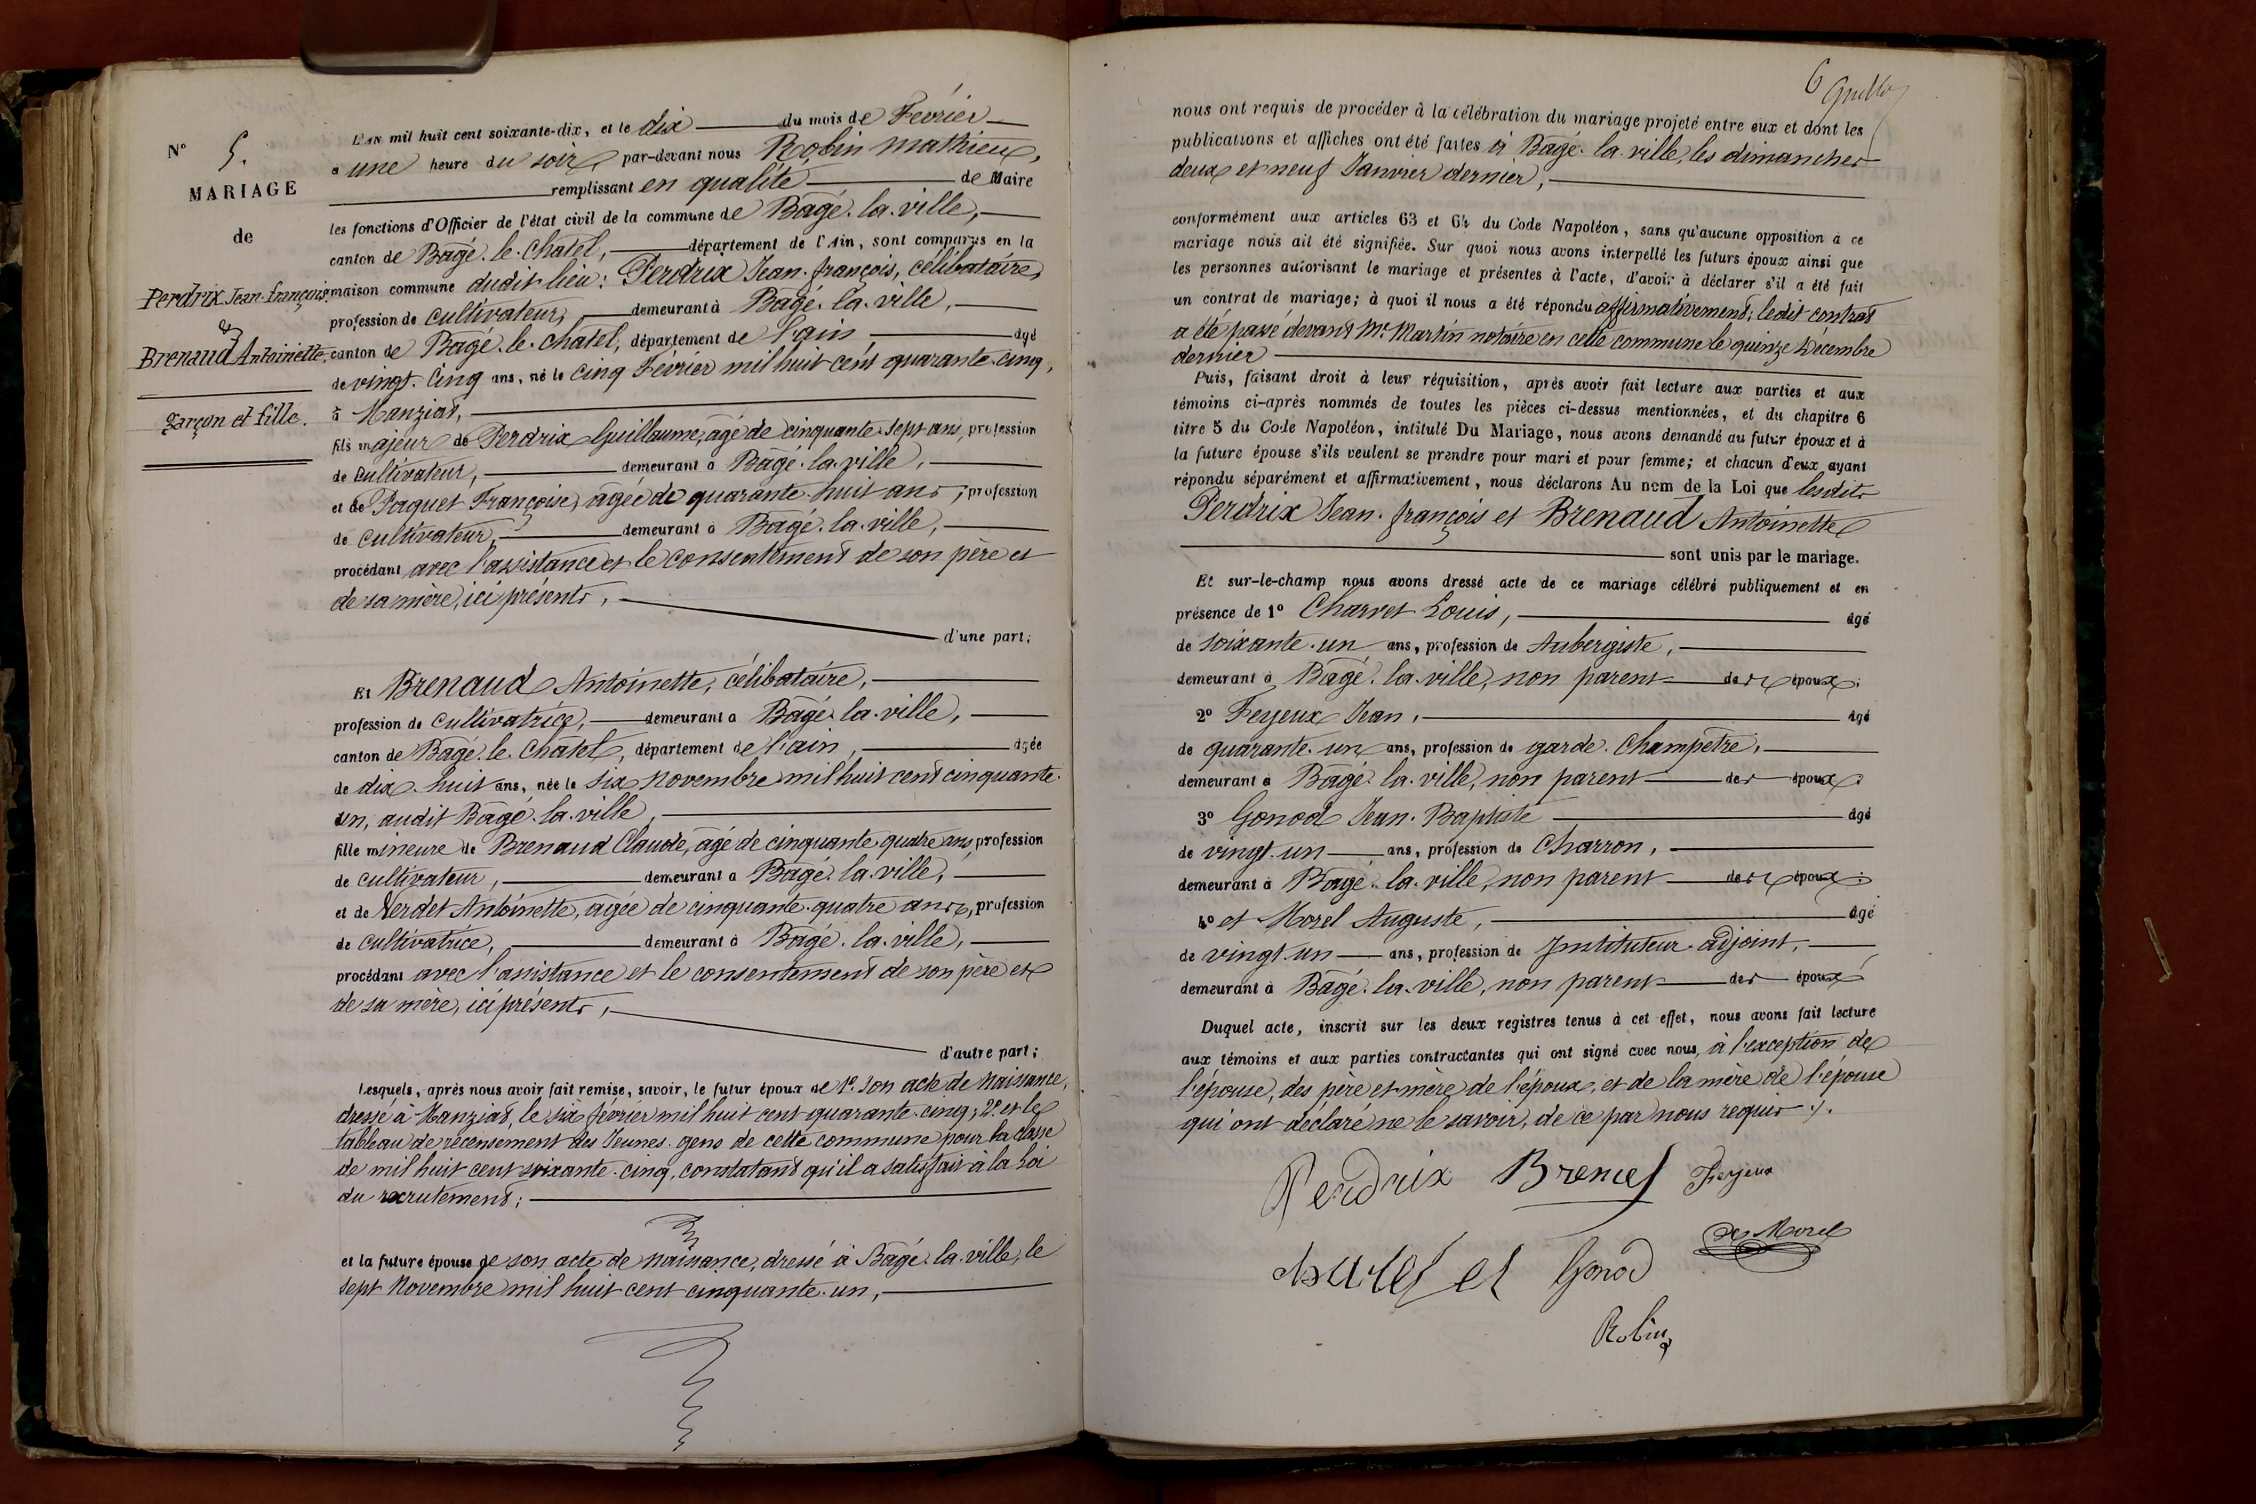 N° 5.
MARIAGE
de
Perdrix Jean-françois
&
Brenaud Antoinette,
garçon et fille.
L'AN mil huit cent soixante-dix, et le dix du mois de Février
a une heure du soir, par-devant nous Robin Mathieu,
remplissant en qualité de Maire
les fonctions d'Officier de l'état civil de la commune de Bâgé-la-ville,
canton de Bâgé-le-Châtel, département de l'Ain, sont comparus en la
maison commune dudit lieu: Perdrix Jean-françois, célibataire,
profession de cultivateur, demeurant à Bâgé-la-ville,
canton de Bâgé-le-châtel, département de l'ain, âgé
de vingt-cinq ans, né le cinq Février mil huit cent quarante-cinq,
à Manziat,
fils majeur de Perdrix Guillaume, âgé de cinquante-sept ans, profession
de cultivateur, demeurant à Bâgé-la-ville,
et de Paquet Françoise, âgée de quarante-huit ans, profession
de cultivateur, demeurant à Bâgé-la-ville,
procédant avec l'assistance et le consentement de son père et
de sa mère, ici présents,
d'une part;
Et Brenaud Antoinette, célibataire,
profession de cultivatrice, demeurant à Bâgé-la-ville,
canton de Bâgé-le-Châtel, département de l'ain, âgée
de dix-huit ans, née le six novembre mil huit cent cinquante-
un, audit Bâgé-la-ville,
fille mineure de Brenaud Claude, âgé de cinquante quatre ans, profession
de cultivateur, demeurant à Bâgé-la-ville,
et de Verdet Antoinette, âgée de cinquante-quatre ans, profession
de cultivatrice, demeurant à Bâgé-la-ville,
procédant avec l'assistance et le consentement de son père et
de sa mère, ici présents,
d'autre part;
Lesquels, après nous avoir fait remise, savoir, le futur époux de 1°. Son acte de Naissance,
dressé à Manziat, le six février mil huit cent quarante-cinq; 2°. et le
tableau de recensement des Jeunes-gens de cette commune pour la classe
de mil huit cent soixante-cinq, constatant qu'il a satisfait à la Loi
du recrutement;
et la future épouse de son acte de naissance, dressé à Bâgé-la-ville, le
sept Novembre mil huit cent cinquante-un,
6
nous ont requis de procéder à la célébration du mariage projeté entre eux et dont les
publications et affiches ont été faites à Bâgé-la-ville les dimanches
deux et neuf Janvier dernier,
conformément aux articles 63 et 64 du Code Napoléon, sans qu'aucune opposition à ce
mariage nous ait été signifiée. Sur quoi nous avons interpellé les futurs époux ainsi que
les personnes autorisant le mariage et présentes à l'acte, d'avoir à déclarer s'il a été fait
un contrat de mariage; à quoi il nous a été répondu affirmativement; ledit contrat
a été passé devant Me. Martin notaire en cette commune le quinze Décembre
dernier
Puis, faisant droit à leur réquisition, après avoir fait lecture aux parties et aux
témoins ci-après nommés de toutes les pièces ci-dessus mentionnées, et du chapitre 6
titre 5 du Code Napoléon, intitulé Du Mariage, nous avons demandé au futur époux et à
la future épouse s'ils veulent se prendre pour mari et pour femme; et chacun d'eux ayant
répondu séparément et affirmativement, nous déclarons Au nom de la Loi que lesdits
Perdrix Jean-françois et Brenaud Antoinette
sont unis par le mariage.
Et sur-le-champ nous avons dressé acte de ce mariage célébré publiquement et en
présence de 1° Charvet Louis, âgé
de soixante-un ans, profession de Aubergiste,
demeurant à Bâgé-la-ville, non parent des époux;
2° Feyeux Jean, âgé
de quarante-un ans, profession de garde-Champêtre,
demeurant à Bâgé-la-ville, non parent des époux;
3° Gonod Jean-Baptiste âgé
de vingt-un ans, profession de Charron,
demeurant à Bâgé-la-ville, non parent des époux;
4° et Morel Auguste, âgé
de vingt-un ans, profession de Instituteur-adjoint,
demeurant à Bâgé-la-ville, non parent des époux
Duquel acte, inscrit sur les deux registres tenus à cet effet, nous avons fait lecture
aux témoins et aux parties contractantes qui ont signé avec nous, à l'exception de
l'épouse, des père et mère de l'époux, et de la mère de l'épouse
qui ont déclaré ne le savoir, de ce par nous requis ./.
Perdrix Feyeux
Morel
Gonod
Robin